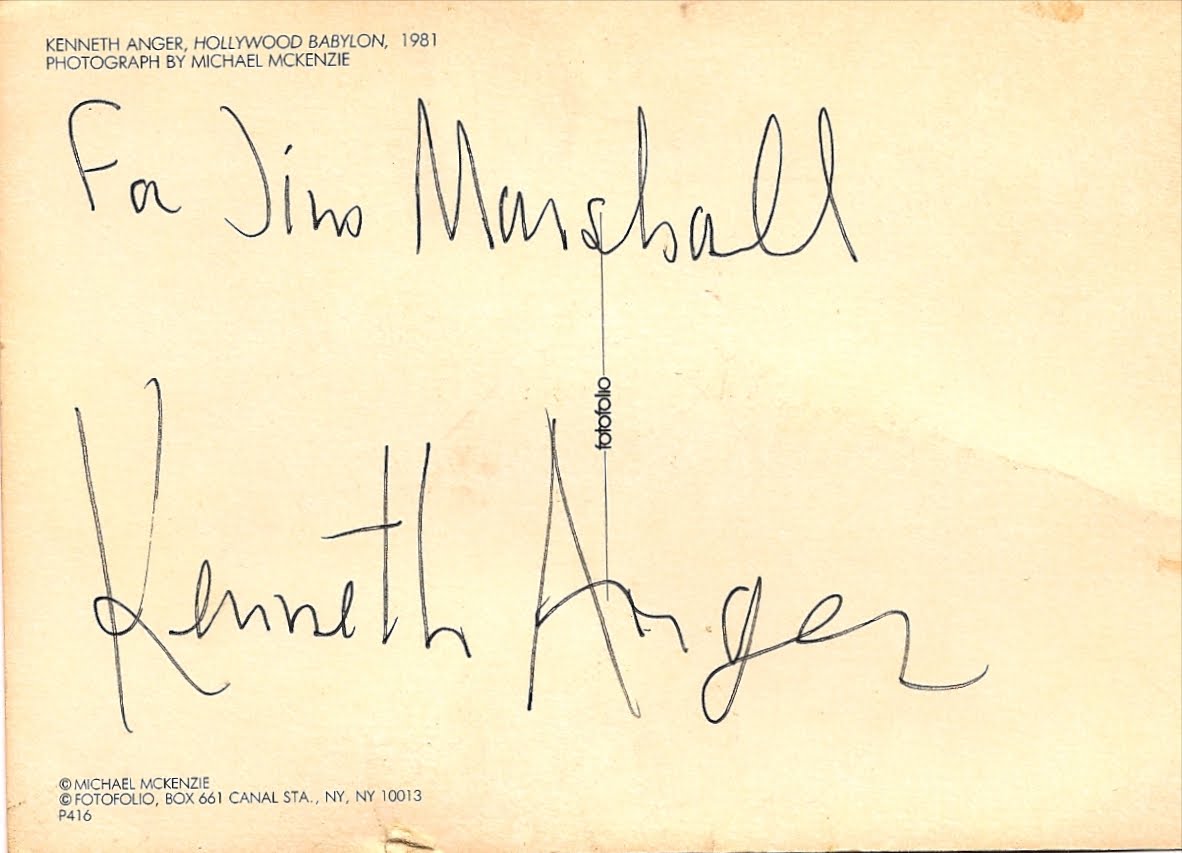 KENNETH ANGER, HOLLYWOOD BABYLON, 1981
PHOTOGRAPH BY MICHAEL MCKENZIE
For Jim Marshall
fotofolio
Kenneth Anger
© MICHAEL MCKENZIE
© FOTOFOLIO, BOX 661 CANAL STA., NY, NY 10013
P416